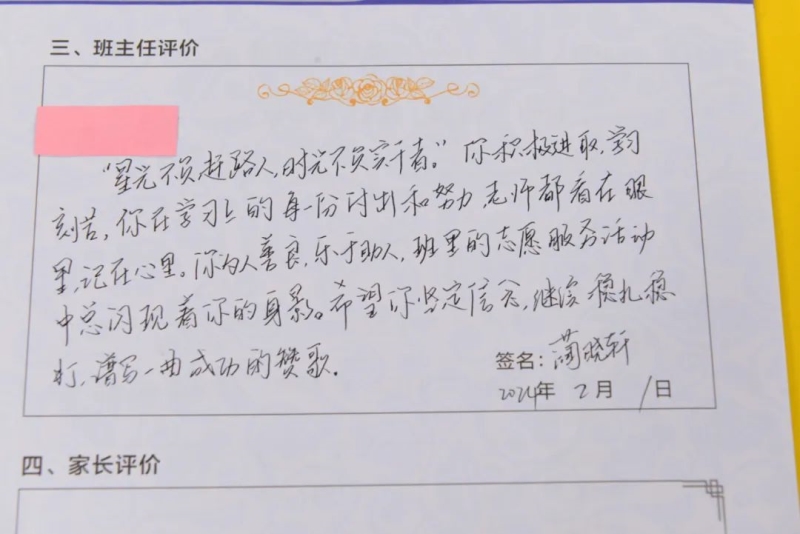 三、班主任评价
"星光不负赶路人,时光不负实干者。"你积极进取,学习
刻苦,你在学习上的每一份付出和努力,老师都看在眼
里,记在心里。你为人善良,乐于助人,班里的志愿服务活动
中总闪现着你的身影。希望你坚定信念,继续稳扎稳
打,谱写一曲成功的赞歌.
签名:蔺晓轩
2024年 2月 1日
四、家长评价